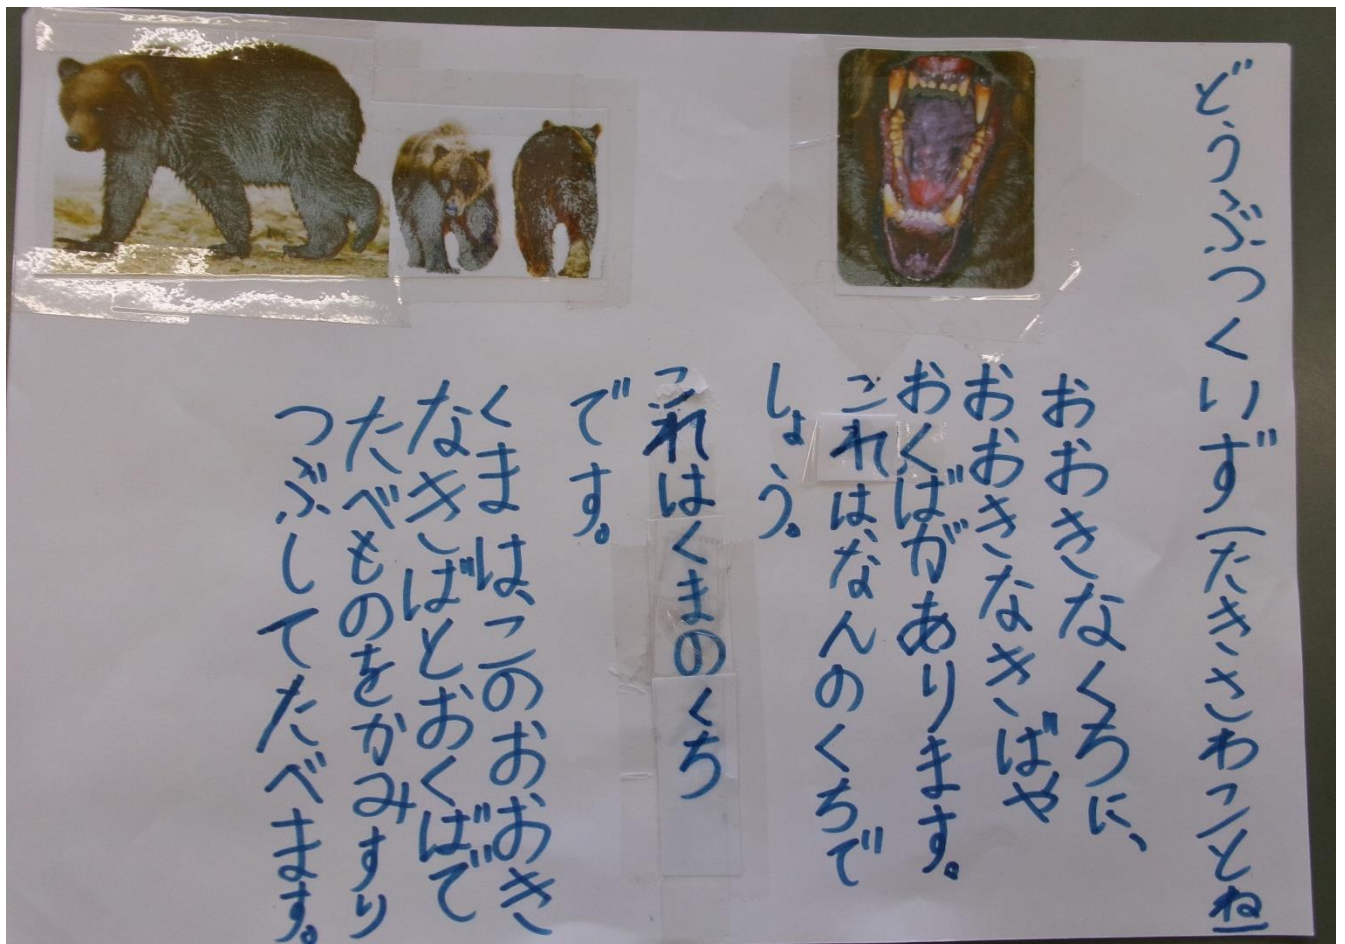 どうぶつくいず(たきさわことね)
おおきなくちに、
おおきなきばや
おくばがあります。
これは、なんのくちで
しょう。
これはくまのくち
です。
くまは、このおおき
なきばとおくばで
たべものをかみすり
つぶしてたべます。